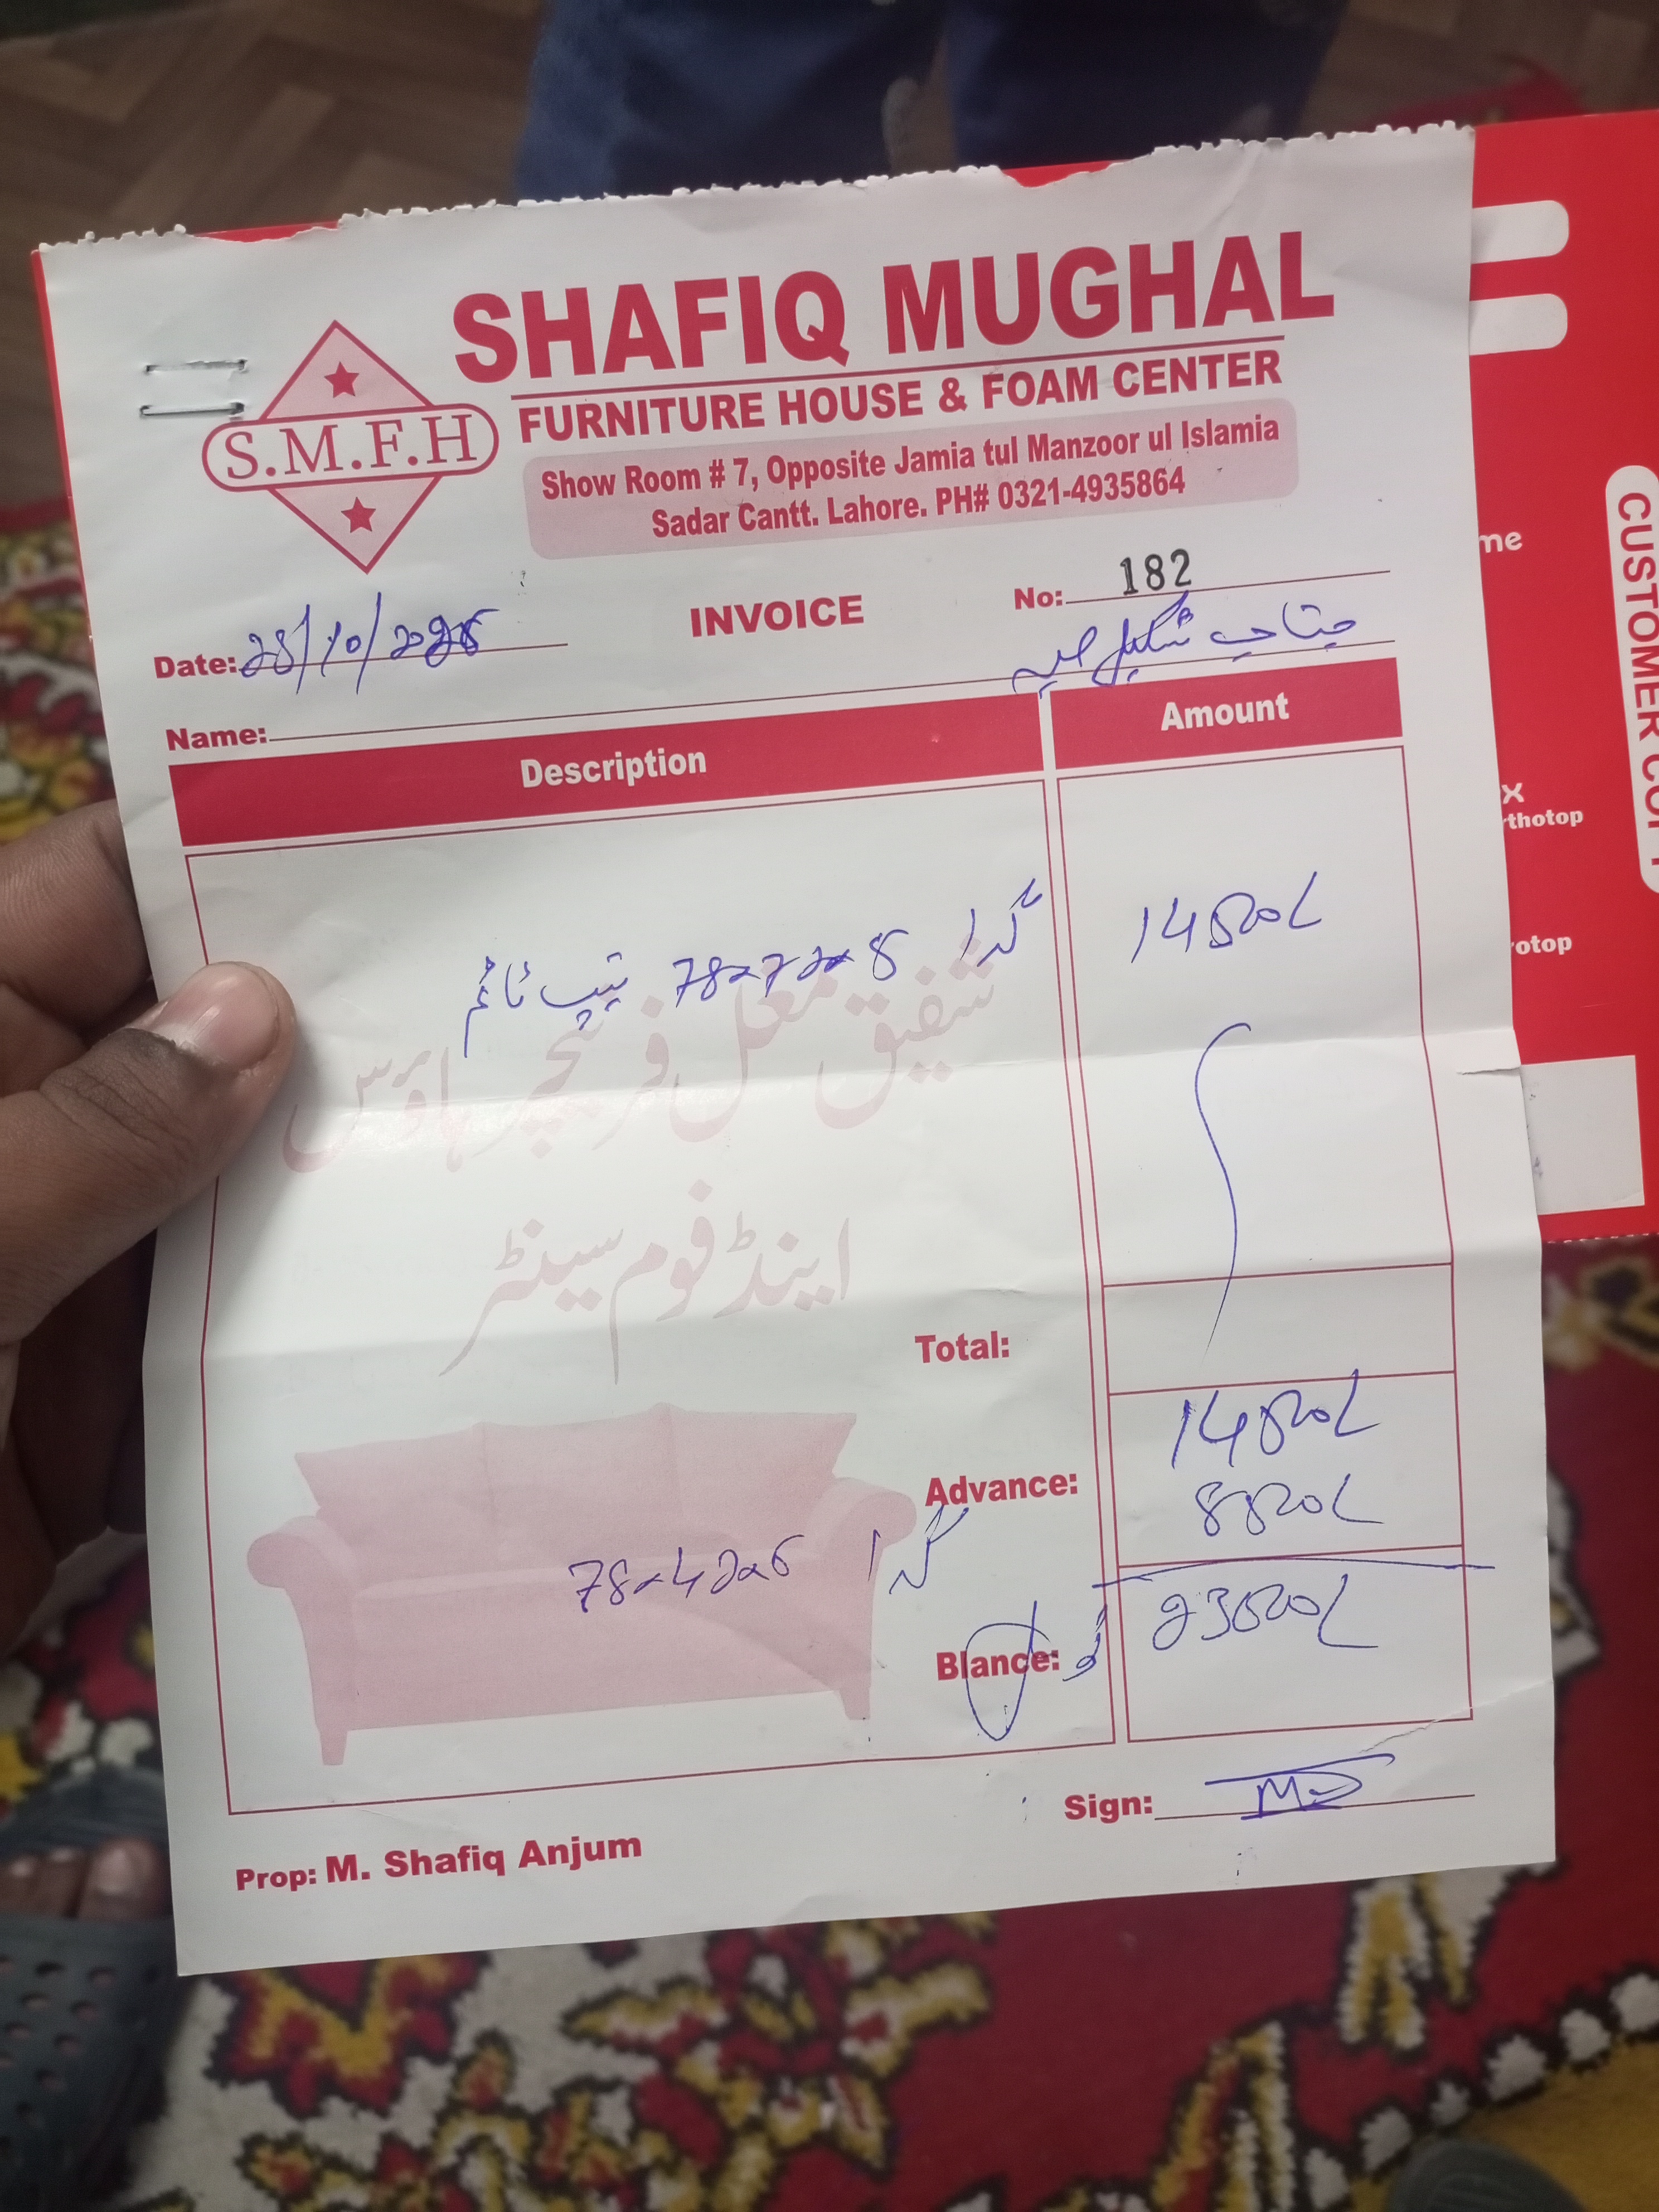 SHAFIQ MUGHAL
FURNITURE HOUSE & FOAM CENTER
S.M.F.H
Show Room # 7, Opposite Jamia tul Manzoor ul Islamia
Sadar Cantt. Lahore. PH# 0321-4935864
INVOICE
No: 182
Date: 28/10/2025
Name: جناب شکیل
Description Amount
گدا 78x72x8 14500/
شفیق مغل فرنیچر ہاؤس
اینڈ فوم سینٹر
Total:
14500/
Advance: 8800/
گدا 78x42x6
Blance: 23300/
Sign:
Prop: M. Shafiq Anjum
CUSTOMER COPY
me
x
rthotop
otop